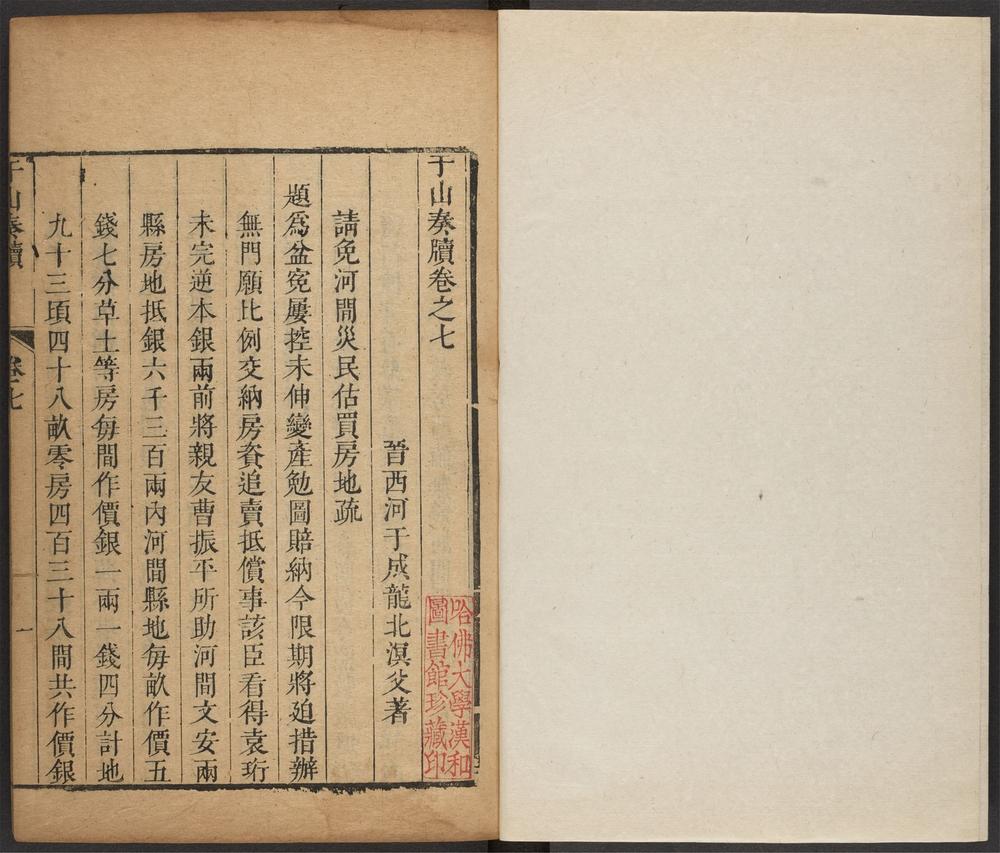 于山奏牘卷之七
晉西河于成龍北溟父著
請免河間災民估買房地疏
題爲盆寃屢控未伸變產勉圖賠納今限期將廹措辦
無門願比例交納房賫追賣抵償事該臣看得袁珩
未完逆本銀兩前將親友曹振平所助河間文安兩
縣房地抵銀六千三百兩內河間縣地每畝作價五
錢七分草土等房每間作價銀一兩一錢四分計地
九十三頃四十八畝零房四百三十八間共作價銀
于山奏牘
卷七
一
哈佛大學漢和
圖書館珍藏印